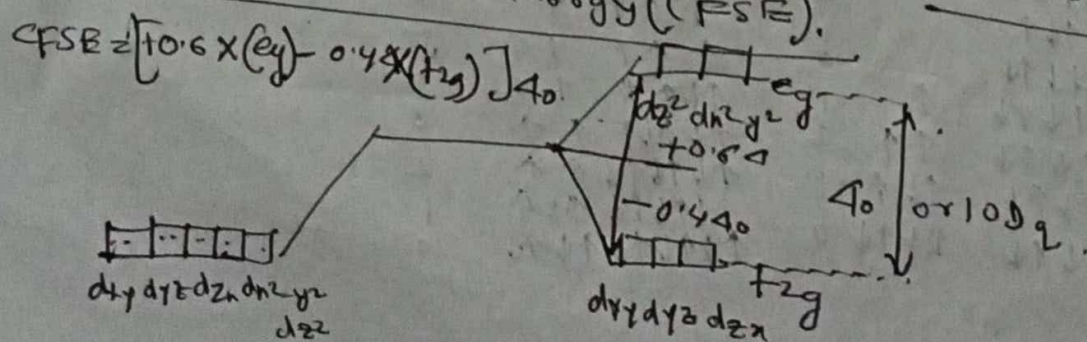 ogy (CFSE).
CFSE = [+0.6 x (eg) - 0.4 x (t2g)] Δ0.
eg
dz² dx² y²
+0.6Δ
-0.4Δ0
Δ0 or 10Dq
dxy dyz dzx dx² y²
dz²
dxy dyz dzx
t2g